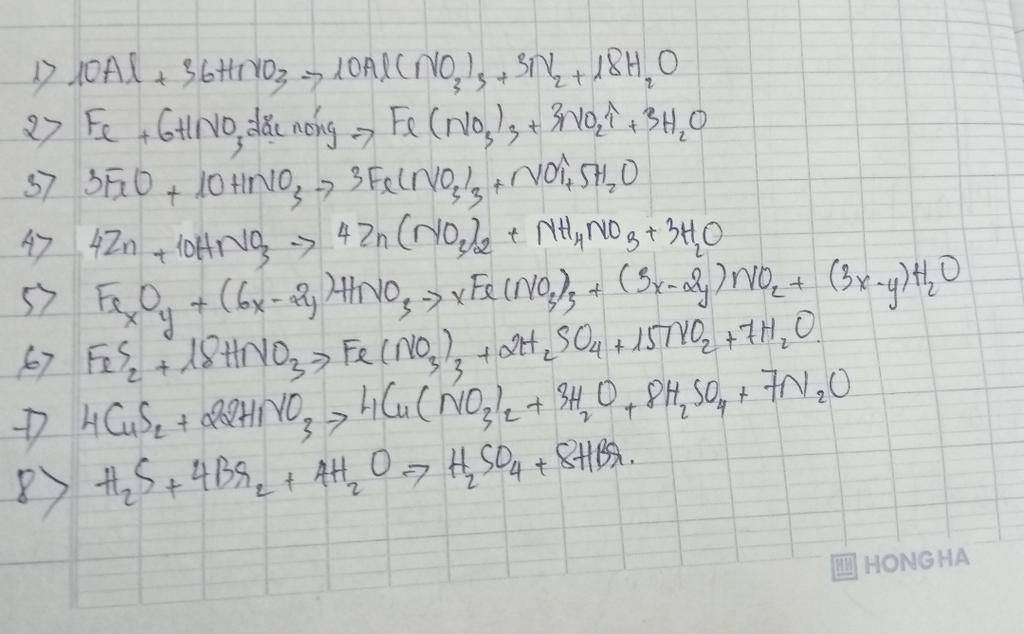 1> 10Al + 36HNO₃ → 10Al(NO₃)₃ + 3N₂ + 18H₂O
2> Fe + 6HNO₃ đặc nóng → Fe(NO₃)₃ + 3NO₂↑ + 3H₂O
3> 3FeO + 10HNO₃ → 3Fe(NO₃)₃ + NO↑ + 5H₂O
4> 4Zn + 10HNO₃ → 4Zn(NO₃)₂ + NH₄NO₃ + 3H₂O
5> FeₓOᵧ + (6x-2y)HNO₃ → xFe(NO₃)₃ + (3x-2y)NO₂ + (3x-y)H₂O
6> FeS₂ + 18HNO₃ → Fe(NO₃)₃ + 2H₂SO₄ + 15NO₂ + 7H₂O.
7> 4CuS₂ + 22HNO₃ → 4Cu(NO₃)₂ + 3H₂O + 8H₂SO₄ + 7N₂O
8> H₂S + 4Br₂ + 4H₂O → H₂SO₄ + 8HBr.
HH HONG HA